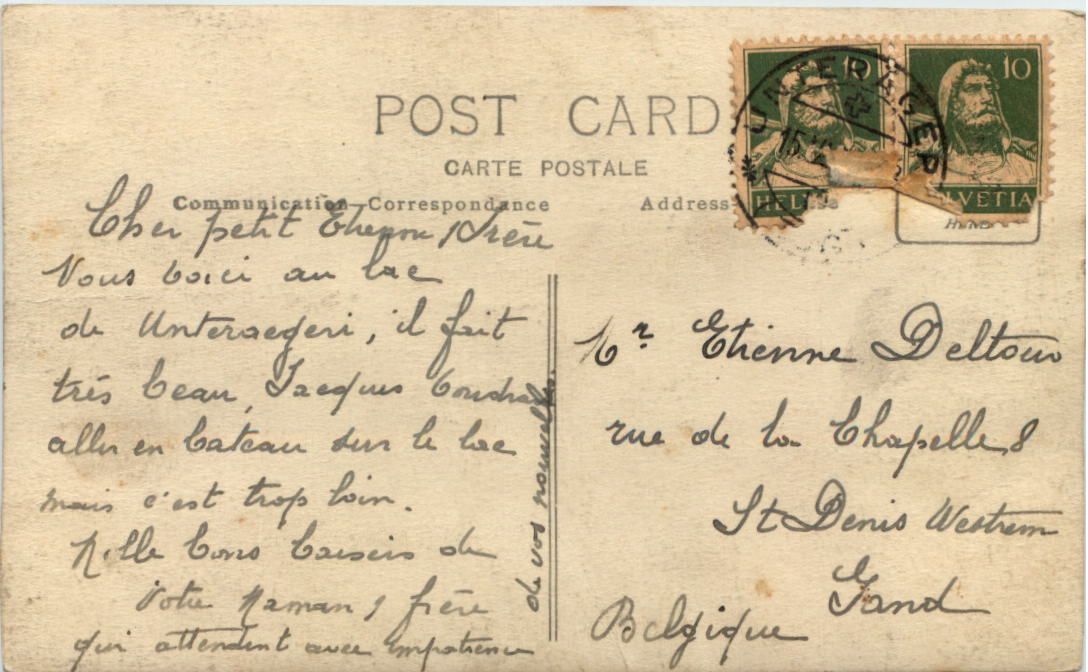 POST CARD
CARTE POSTALE
Communication—Correspondance
Address
10
10
HELVETIA
UNTERÄGERI
Cher petit Etienne, frère
Vous voici au lac
de Unteraegeri, il fait
très beau, Jacques voudrait
aller en bateau sur le lac
mais c'est trop loin.
Mille bons baisers de
votre Maman, frère
qui attendent avec impatience
de vos nouvelles.
Mr. Etienne Deltour
rue de la Chapelle 8
St Denis Westrem
Gand
Belgique